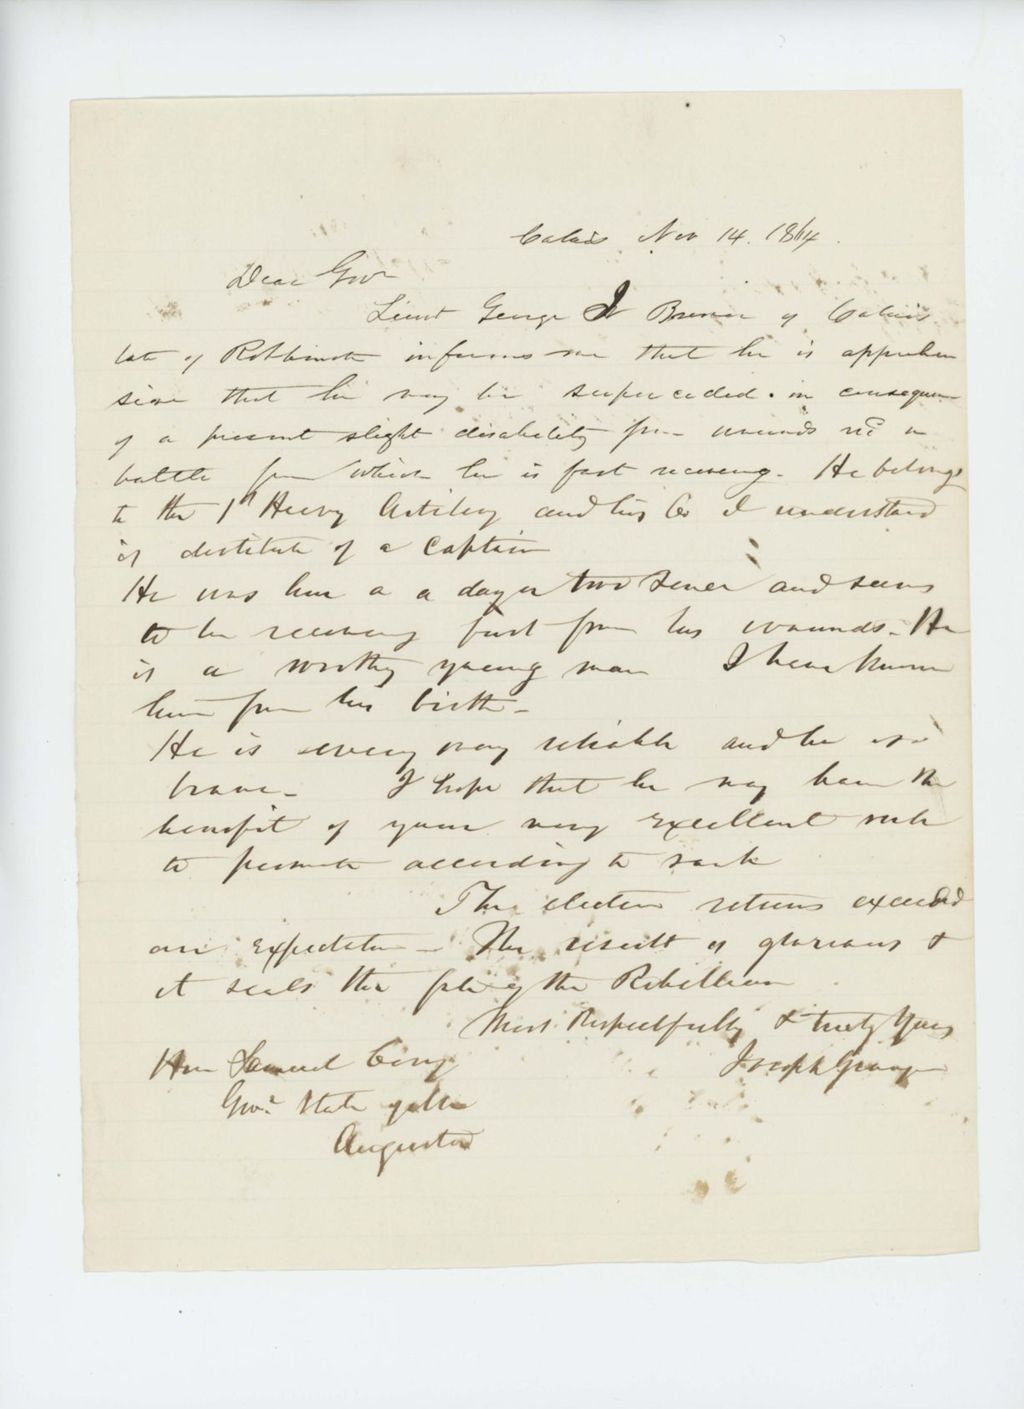 Calais Nov 14. 1864.
Dear Gov
Lieut George W Brown of Calais
late of Robbinston informs me that he is apprehen
sive that he may be superceded in consequence
of a present slight disability from wounds recd in
battle from which he is fast recovering. He belongs
to the 1st Heavy Artillery and his Co I understand
is destitute of a Captain
He was here a a day or two since and seems
to be recovering fast from his wounds. He
is a worthy young man I have known
him from his birth -
He is every way reliable and he is
brave - I hope that he may have the
benefit of your very excellent rule
to promote according to rank
The election returns exceeded
our expectation - The result is glorious &
it seals the fate of the Rebellion
Most Respectfully & truly Yours
Joseph Granger
Hon Samuel Cony
Gov.r State of Me
Augusta